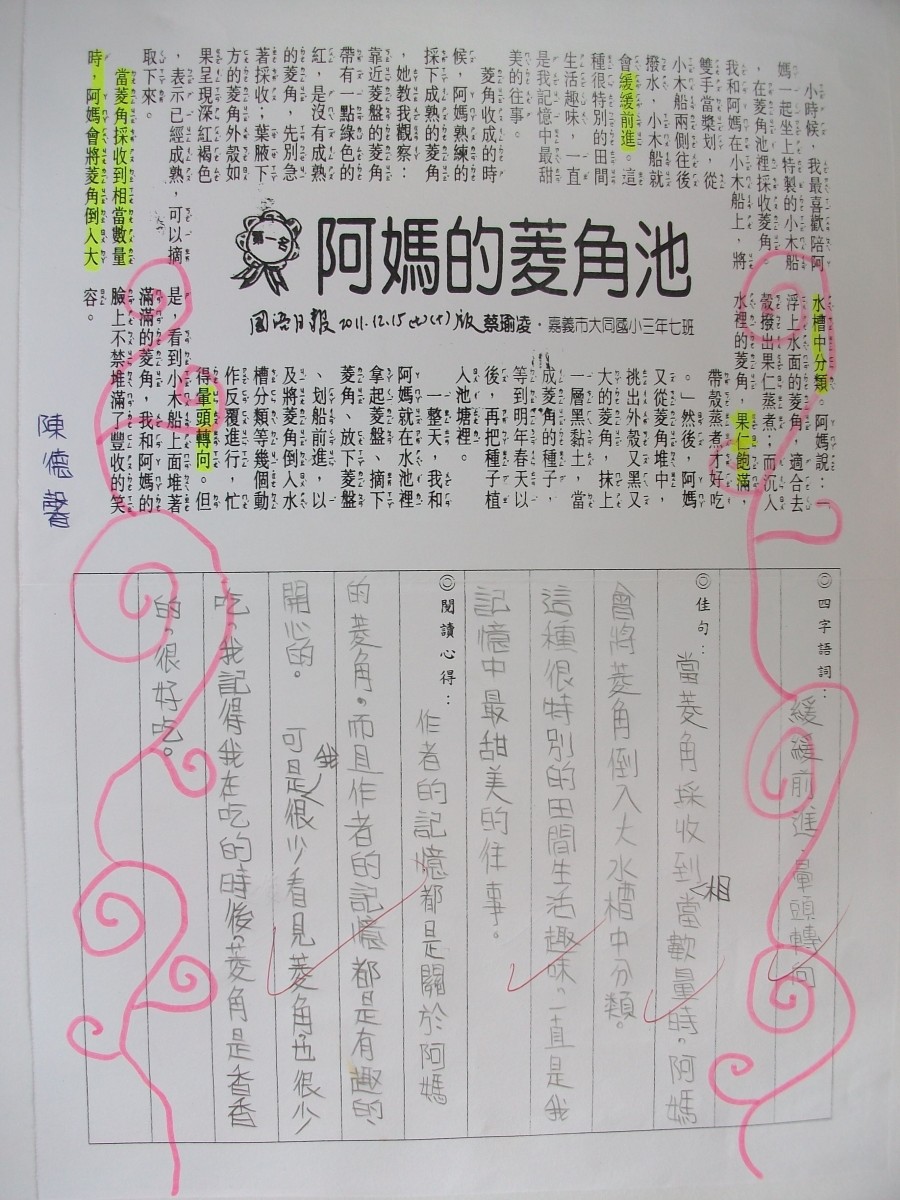 阿媽的菱角池
第一名
國語日報 2011.12.15(七)(十)版
蔡瑜凌・嘉義市大同國小三年七班
小時候，我最喜歡陪阿
媽一起坐上特製的小木船
，在菱角池裡採收菱角。
我和阿媽在小木船上，將
雙手當槳划，從
小木船兩側往後
撥水，小木船就
會緩緩前進。這
種很特別的田間
生活趣味，一直
是我記憶中最甜
美的往事。
菱角收成的時
候，阿媽熟練的
採下成熟的菱角
，她教我觀察：
靠近菱盤的菱角
帶有一點綠色的
紅，是沒有成熟
的菱角，先別急
著採收；葉腋下
方的菱角外殼如
果呈現深紅褐色
，表示已經成熟，可以摘
取下來。
當菱角採收到相當數量
時，阿媽會將菱角倒入大
水槽中分類。阿媽說：「
浮上水面的菱角，適合去
殼撥出果仁蒸煮；而沉入
水裡的菱角，果仁飽滿，
帶殼蒸煮才好吃
。」然後，阿媽
又從菱角堆中，
挑出外殼又黑又
大的菱角，抹上
一層黑黏土，當
成菱角的種子，
等到明年春天以
後，再把種子植
入池塘裡。
一整天，我和
阿媽就在水池裡
拿起菱盤、摘下
菱角、放下菱盤
、划船前進，以
及將菱角倒入水
槽分類等幾個動
作反覆進行，忙
得暈頭轉向。但
是，看到小木船上面堆著
滿滿的菱角，我和阿媽的
臉上不禁堆滿了豐收的笑
容。
陳德馨
◎四字語詞：緩緩前進、暈頭轉向
◎佳句：當菱角採收到相當數量時，阿媽
會將菱角倒入大水槽中分類。
這種很特別的田間生活趣味，一直是我
記憶中最甜美的往事。
◎閱讀心得：作者的記憶都是關於阿媽
的菱角。而且作者的記憶都是有趣的、
開心的。可是我很少看見菱角，也很少
吃，我記得我在吃的時後，菱角是香香
的，很好吃。